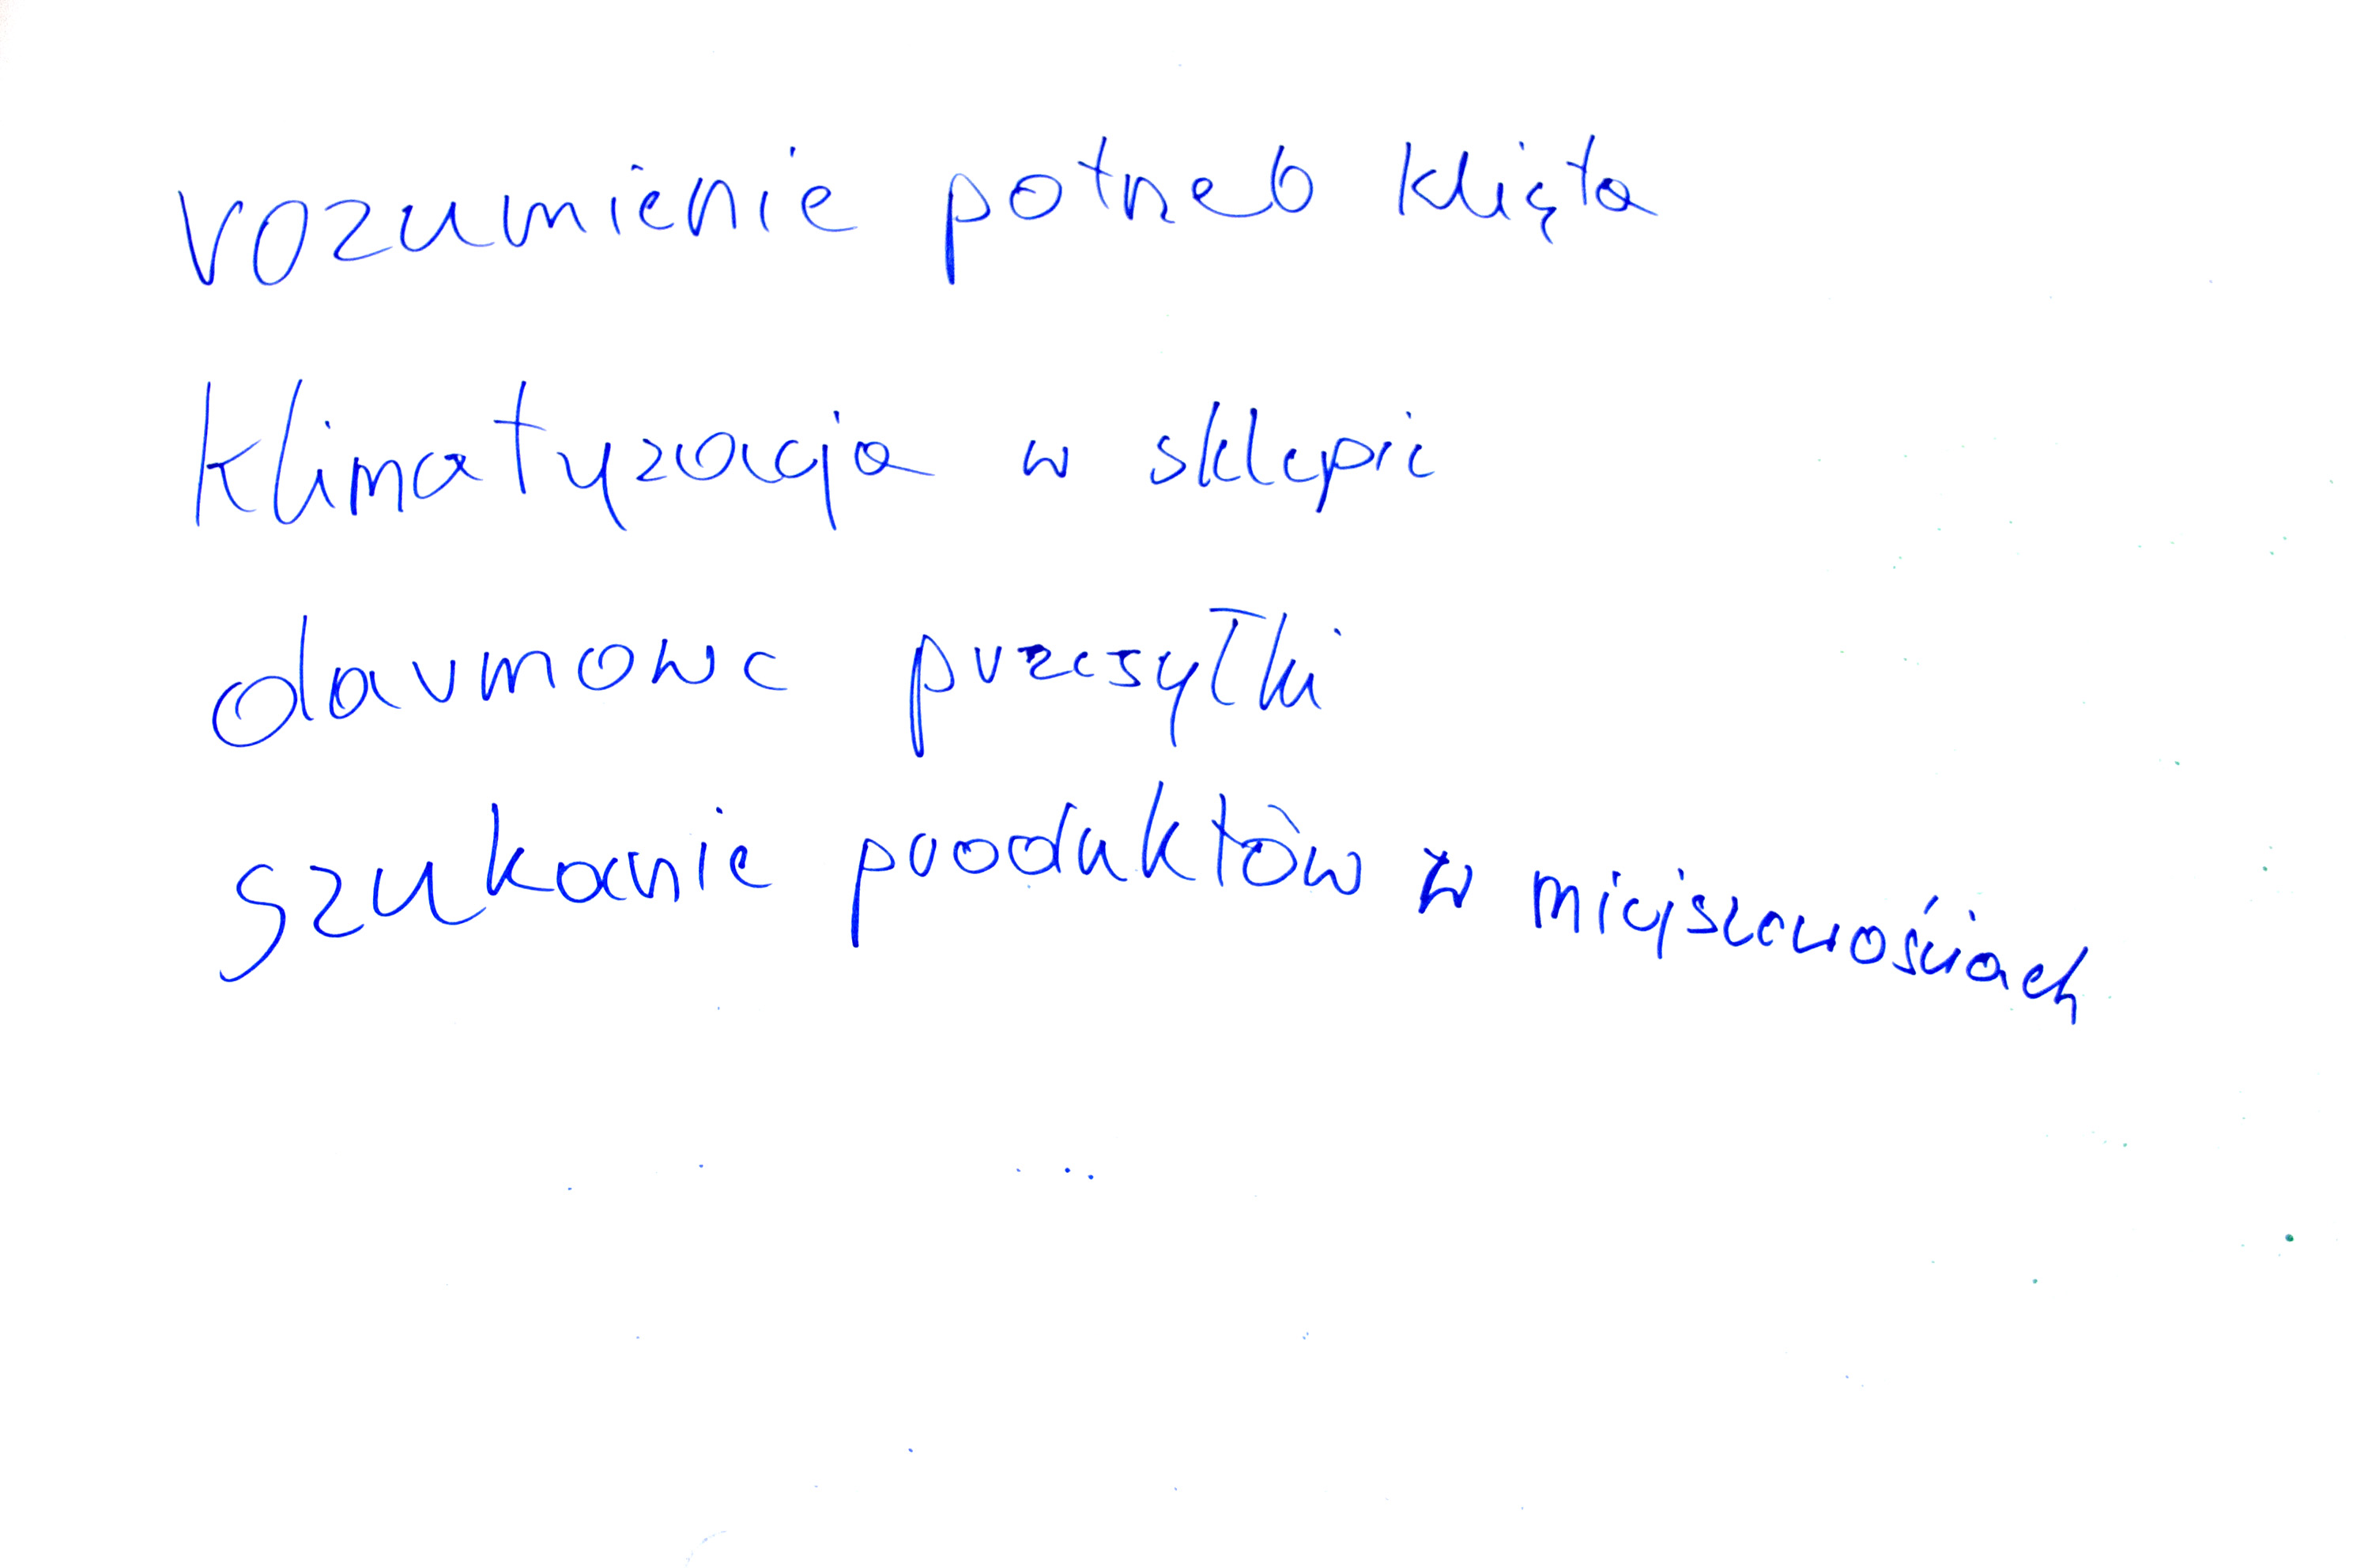 rozumienie potrzeb klięta
klimatyzacja w sklepie
darmowe przesyłki
szukanie produktów w miejscowościach